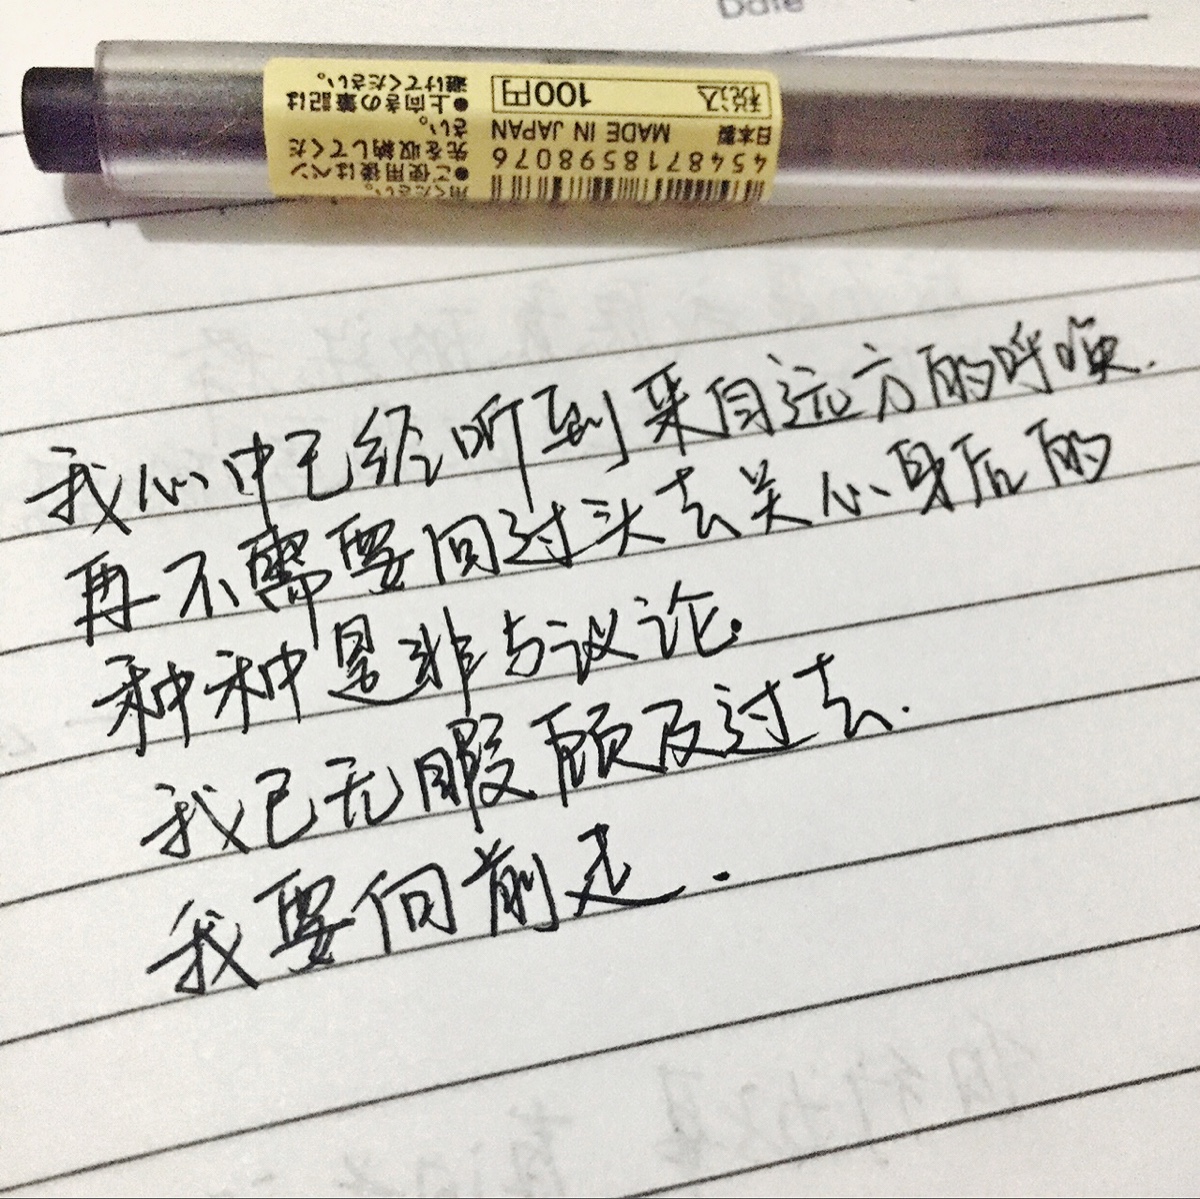 Date
用ください。
●ご使用後はペン
先を収納してくだ
さい。
●上向きの筆記は
避けてください。
4548718598076
日本製 MADE IN JAPAN
税込 100円
我心中已经听到来自远方的呼唤.
再不需要回过头去关心身后的
种种是非与议论.
我已无暇顾及过去.
我要向前走.